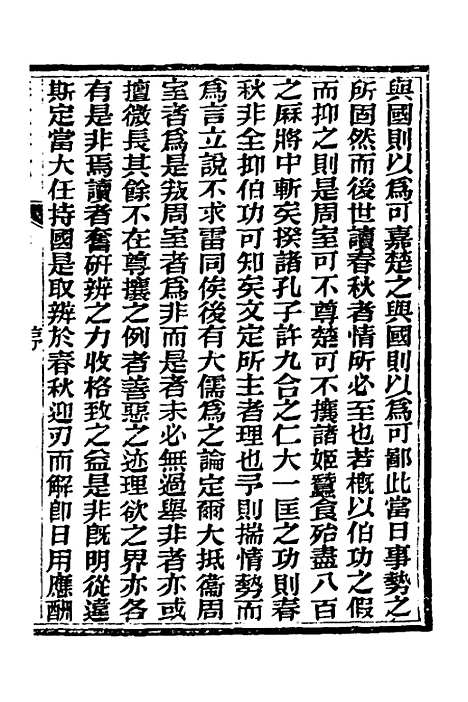 與國則以爲可嘉楚之與國則以爲可鄙此當日事勢之
所固然而後世讀春秋者情所必至也若槪以伯功之假
而抑之則是周室可不尊楚可不攘諸姬蠶食殆盡八百
之麻將中斬矣揆諸孔子許九合之仁大一匡之功則春
秋非全抑伯功可知矣文定所主者理也予則揣情勢而
爲言立說不求雷同俟後有大儒爲之論定爾大抵衞周
室者爲是叛周室者爲非而是者未必無過舉非者亦或
擅微長其餘不在尊攘之例者善惡之迹理欲之界亦各
有是非焉讀者奮研辨之力收格致之益是非旣明從違
斯定當大任持國是取辨於春秋迎刃而解卽日用應酬
序